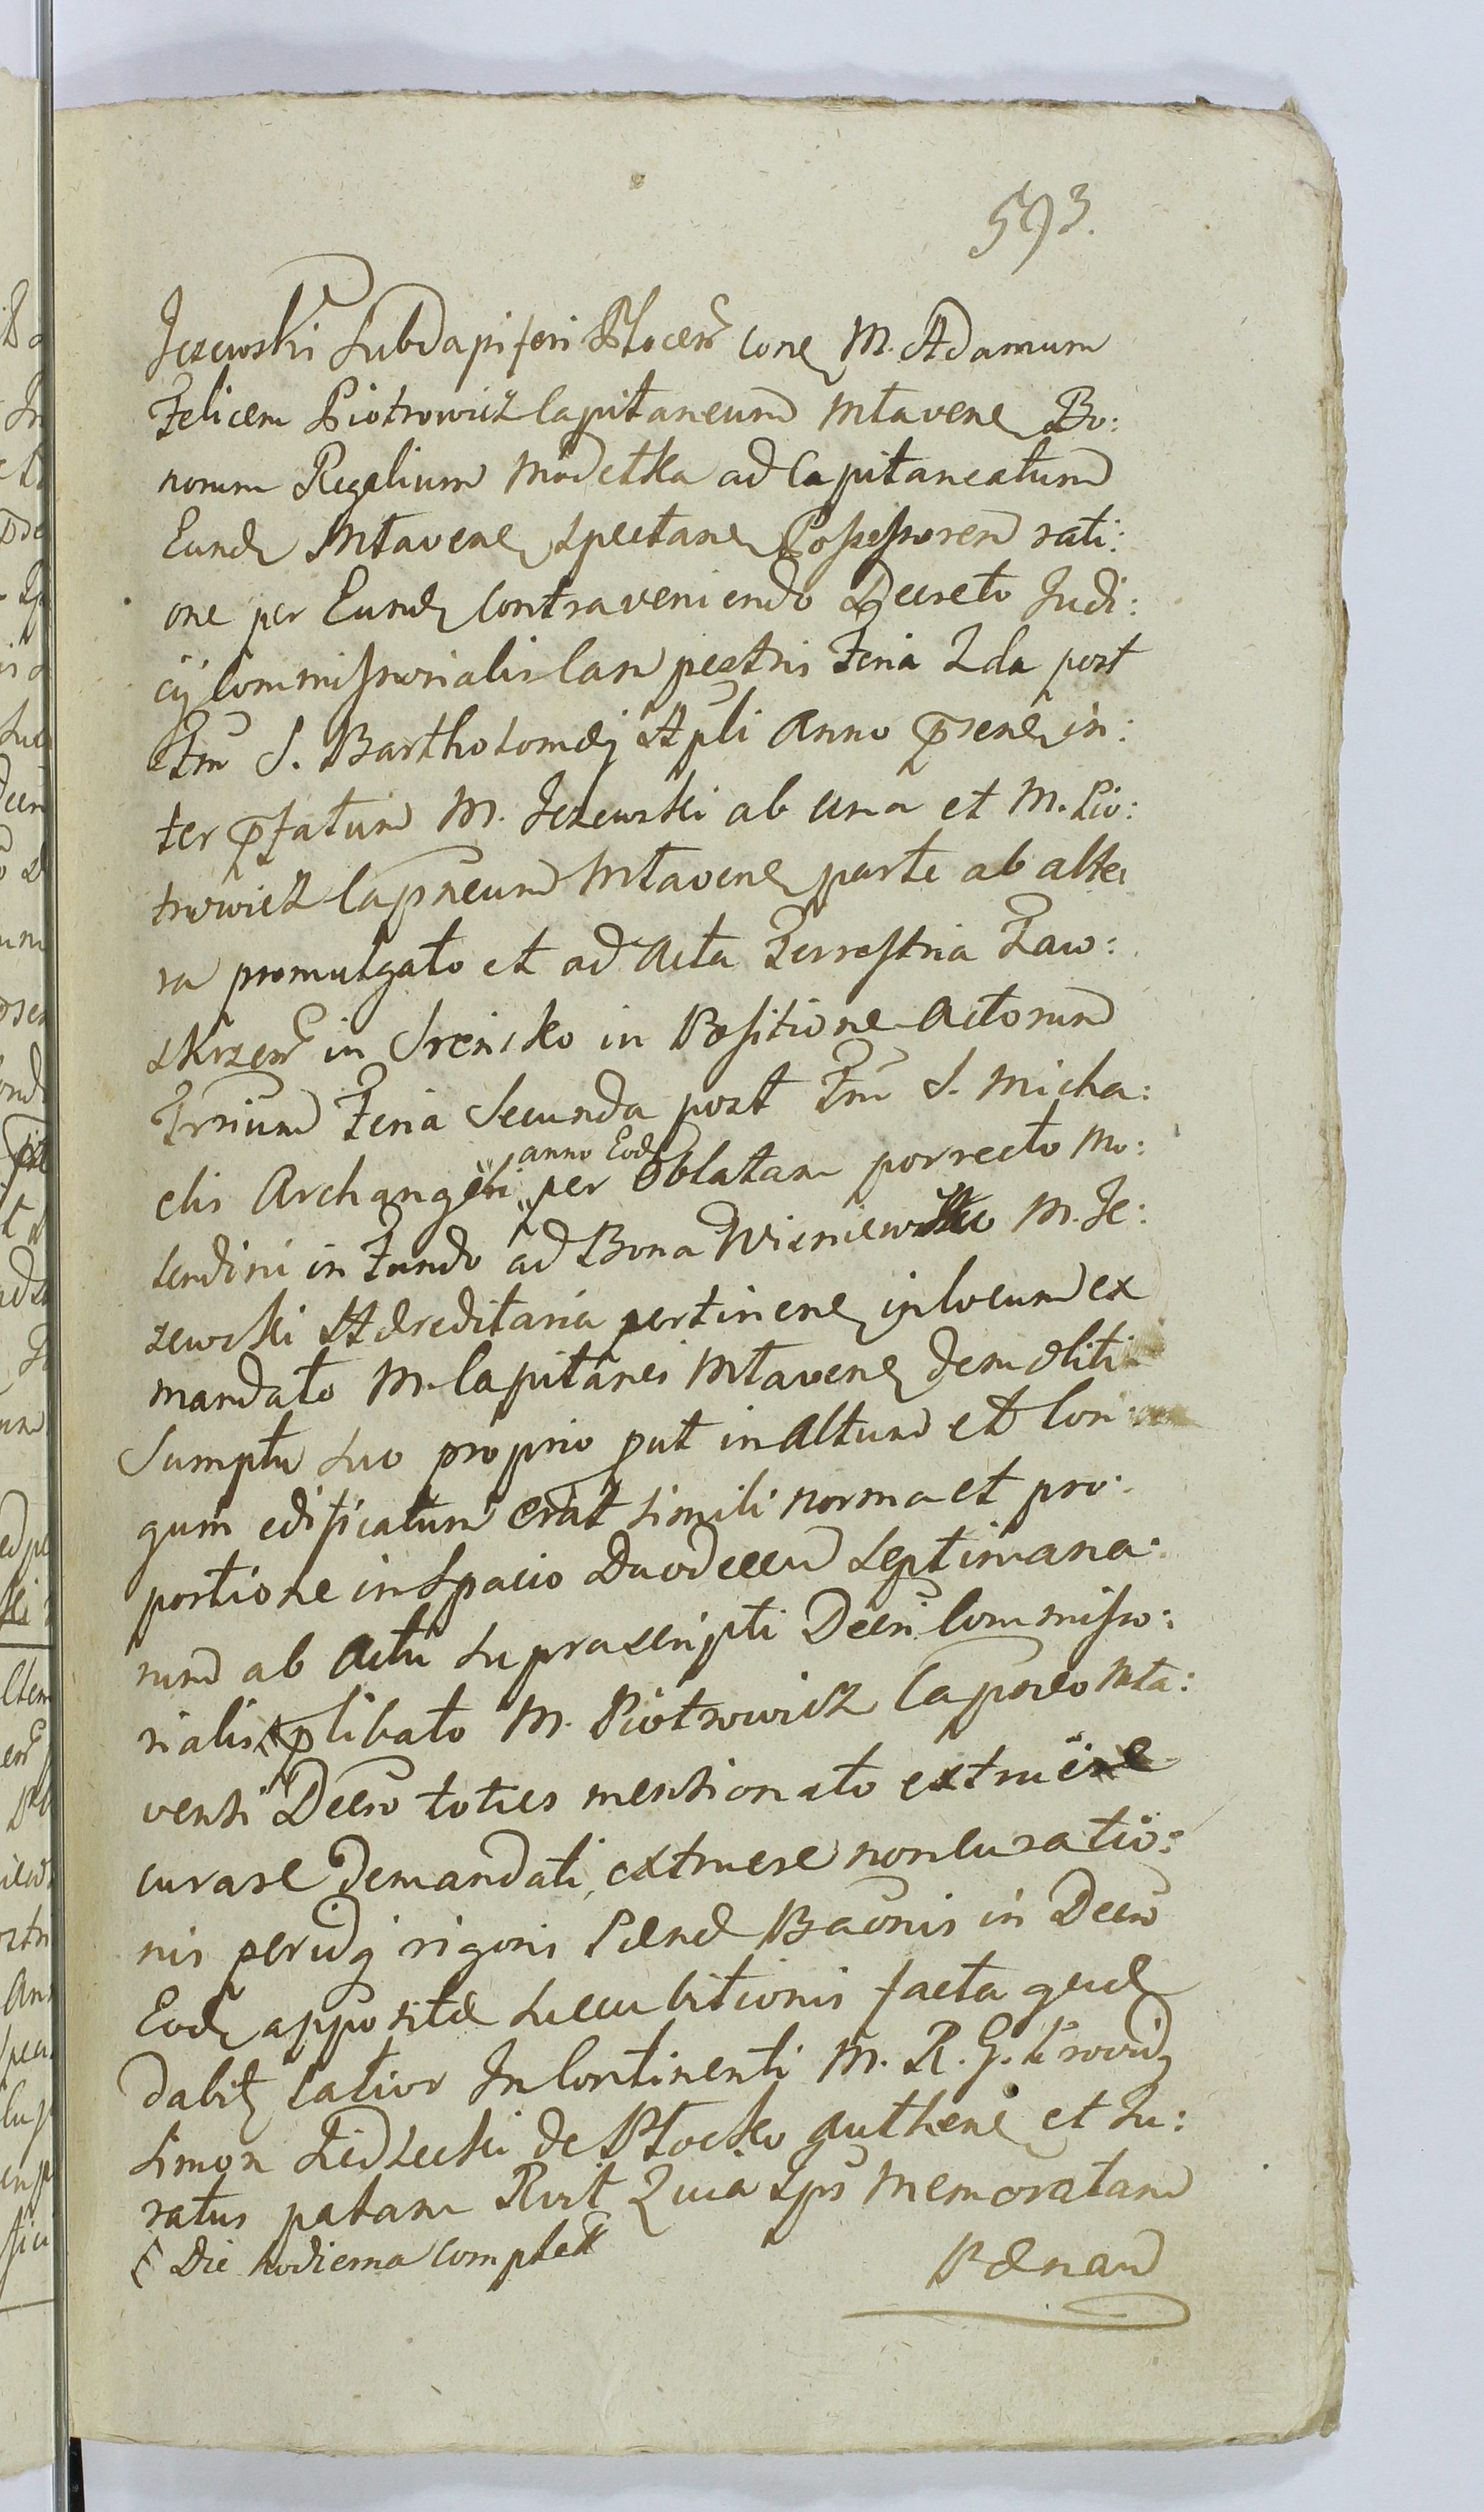 593.
Jezewski Subdapiferi Płocen̄ Cone M. Adamum
Felicem Piotrowicz Capitaneum Mlavene Bo:
norum Regalium Modełka ad Capitaneatum
Eund Mlavene spectane Possessorem rati:
one per Eund Contraveniendo Decreto Judi:
cij Commissorialis Campestris Feria 2da post
Ftm̄ S. Bartholomæj Apli Anno p̄sene in:
ter p̄fatum M. Jezewski ab una et M. Pio:
trowicz Capneum Mlavene parte ab alte
ra promulgato et ad Acta Terrestria Zaw:
skrzen̄ in Sreńsko in Positione Actorum
Trrium Feria Secunda post Ftm̄ S. Micha:
elis Archangeli anno Eod per Oblatam porrecto Mo:
lendini in Fundo ad Bona Wisniewko M. Je:
zewski Hæreditaria pertinene in locum ex
mandato M. Capitanei Mlavene demoliti
Sumptu suo proprio put in altum et Lon:
gum edificatum erat simili norma et pro:
portione in Spacio Duodecem Septimana:
rum ab Actu suprascripti Decri Commisso:
rialis p̄libato M. Piotrowicz Capneo Mla:
vensi Decro toties mentionato extruere
curare Demandati, extruere non curatio:
nis perindq rigoris Pænæ Bañonis in Decro
Eod appositæ succubitionis facta que
dabit Latior In Continenti M. R. G. Provid
Simon Siedlecki de Płocko Authene et Ju:
ratus palam Rvit Quia Ips̄ Memoratam
Die hodierna complet
Pænam